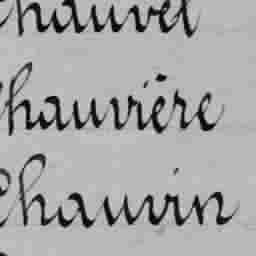 Chauvet
Chauvière
Chauvin